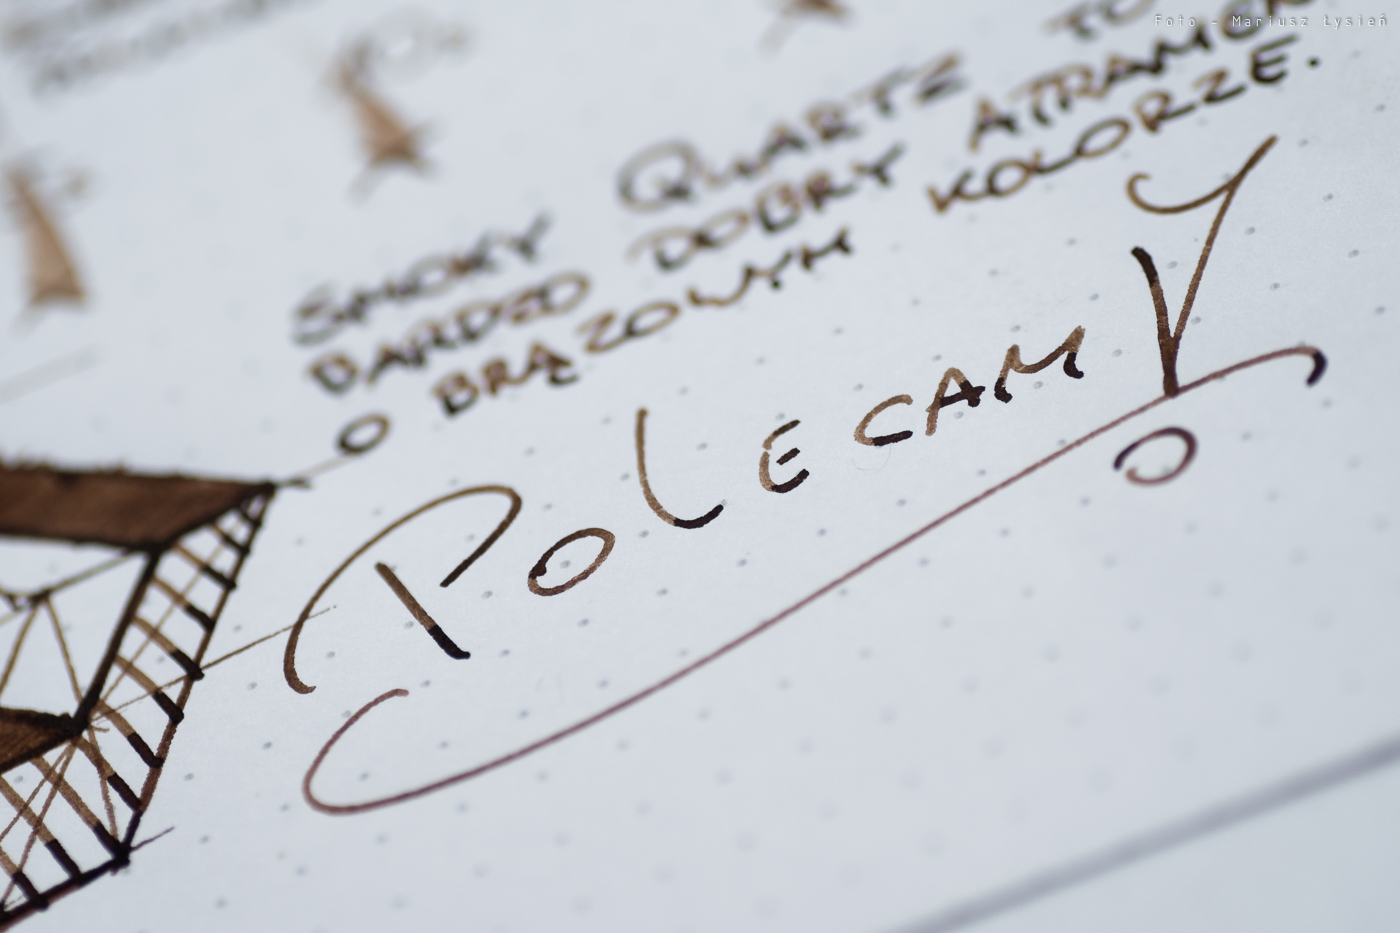 Foto - Mariusz Łysień
SMOKY QUARTZ TO
BARDZO DOBRY ATRAMEN
O BRĄZOWYM KOLORZE.
POLECAM!